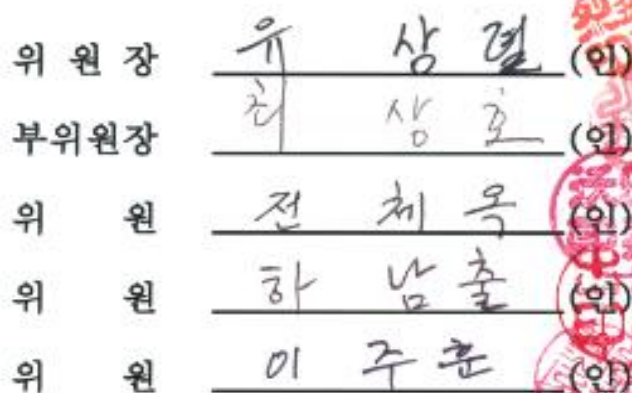 위 원 장 유 상 렬 (인)
부위원장 최 상 호 (인)
위 원 전 체 옥 (인)
위 원 하 남 출 (인)
위 원 이 주 훈 (인)